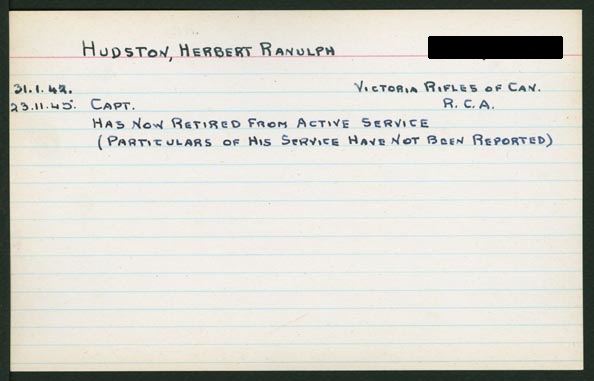 HUDSTON, HERBERT RANULPH
31.1.42. VICTORIA RIFLES OF CAN.
23.11.45. CAPT. R.C.A.
HAS NOW RETIRED FROM ACTIVE SERVICE
(PARTICULARS OF HIS SERVICE HAVE NOT BEEN REPORTED)